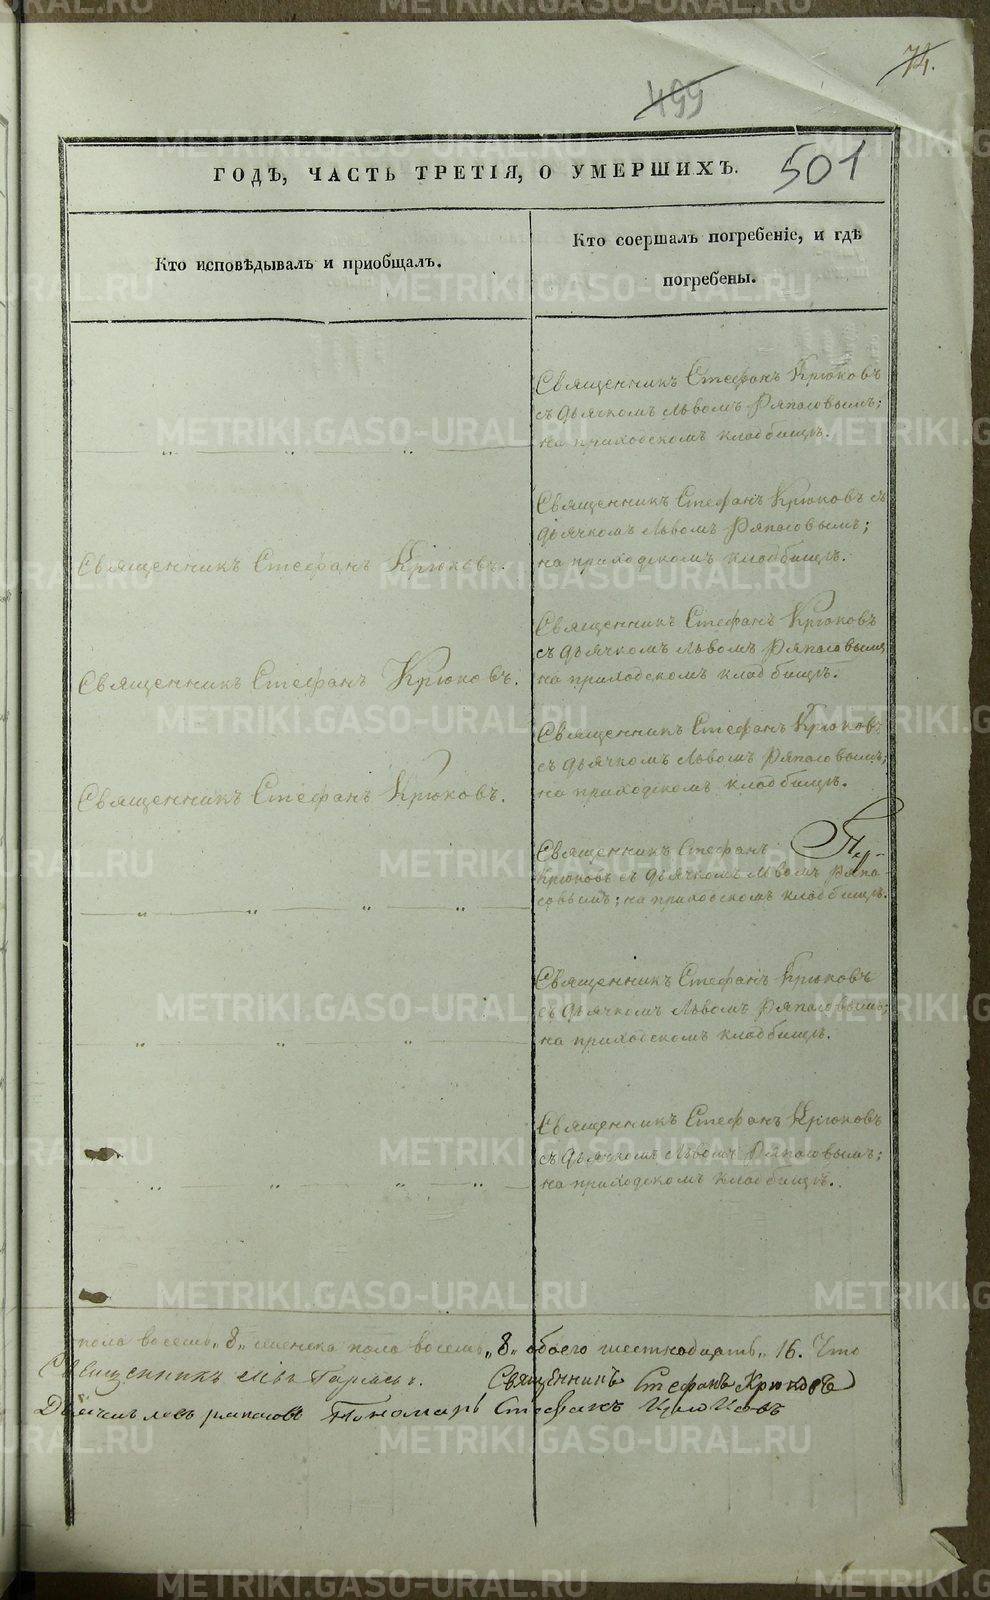 74.
499
501
ГОДЪ, ЧАСТЬ ТРЕТІЯ, О УМЕРШИХЪ.
Кто исповѣдывалъ и приобщалъ.
Кто соершалъ погребеніе, и гдѣ
погребены.
Священникъ Стефанъ Крюковъ
съ дьячкомъ Львомъ Ряпасовымъ;
на приходскомъ кладбищѣ.
Священникъ Стефанъ Крюковъ.
Священникъ Стефанъ Крюковъ съ
дьячкомъ Львомъ Ряпасовымъ;
на приходскомъ кладбищѣ.
Священникъ Стефанъ Крюковъ.
Священникъ Стефанъ Крюковъ
съ дьячкомъ Львомъ Ряпасовымъ
на приходскомъ кладбищѣ.
Священникъ Стефанъ Крюковъ.
Священникъ Стефанъ Крюковъ
съ дьячкомъ Львомъ Ряпасовымъ;
на приходскомъ кладбищѣ.
Священникъ Стефанъ
Крюковъ съ дьячкомъ Львомъ Ряпа-
совымъ; на приходскомъ кладбищѣ.
Священникъ Стефанъ Крюковъ
съ дьячкомъ Львомъ Ряпасовымъ;
на приходскомъ кладбищѣ.
Священникъ Стефанъ Крюковъ
съ дьячкомъ Львомъ Ряпасовымъ;
на приходскомъ кладбищѣ.
пола восемь „8„ женска пола восемь „8„ обоего шестнадцать „16. Что
Священникъ Священникъ Стефанъ Крюковъ
Пономарь Стефанъ
METRIKI.GASO-URAL.RU